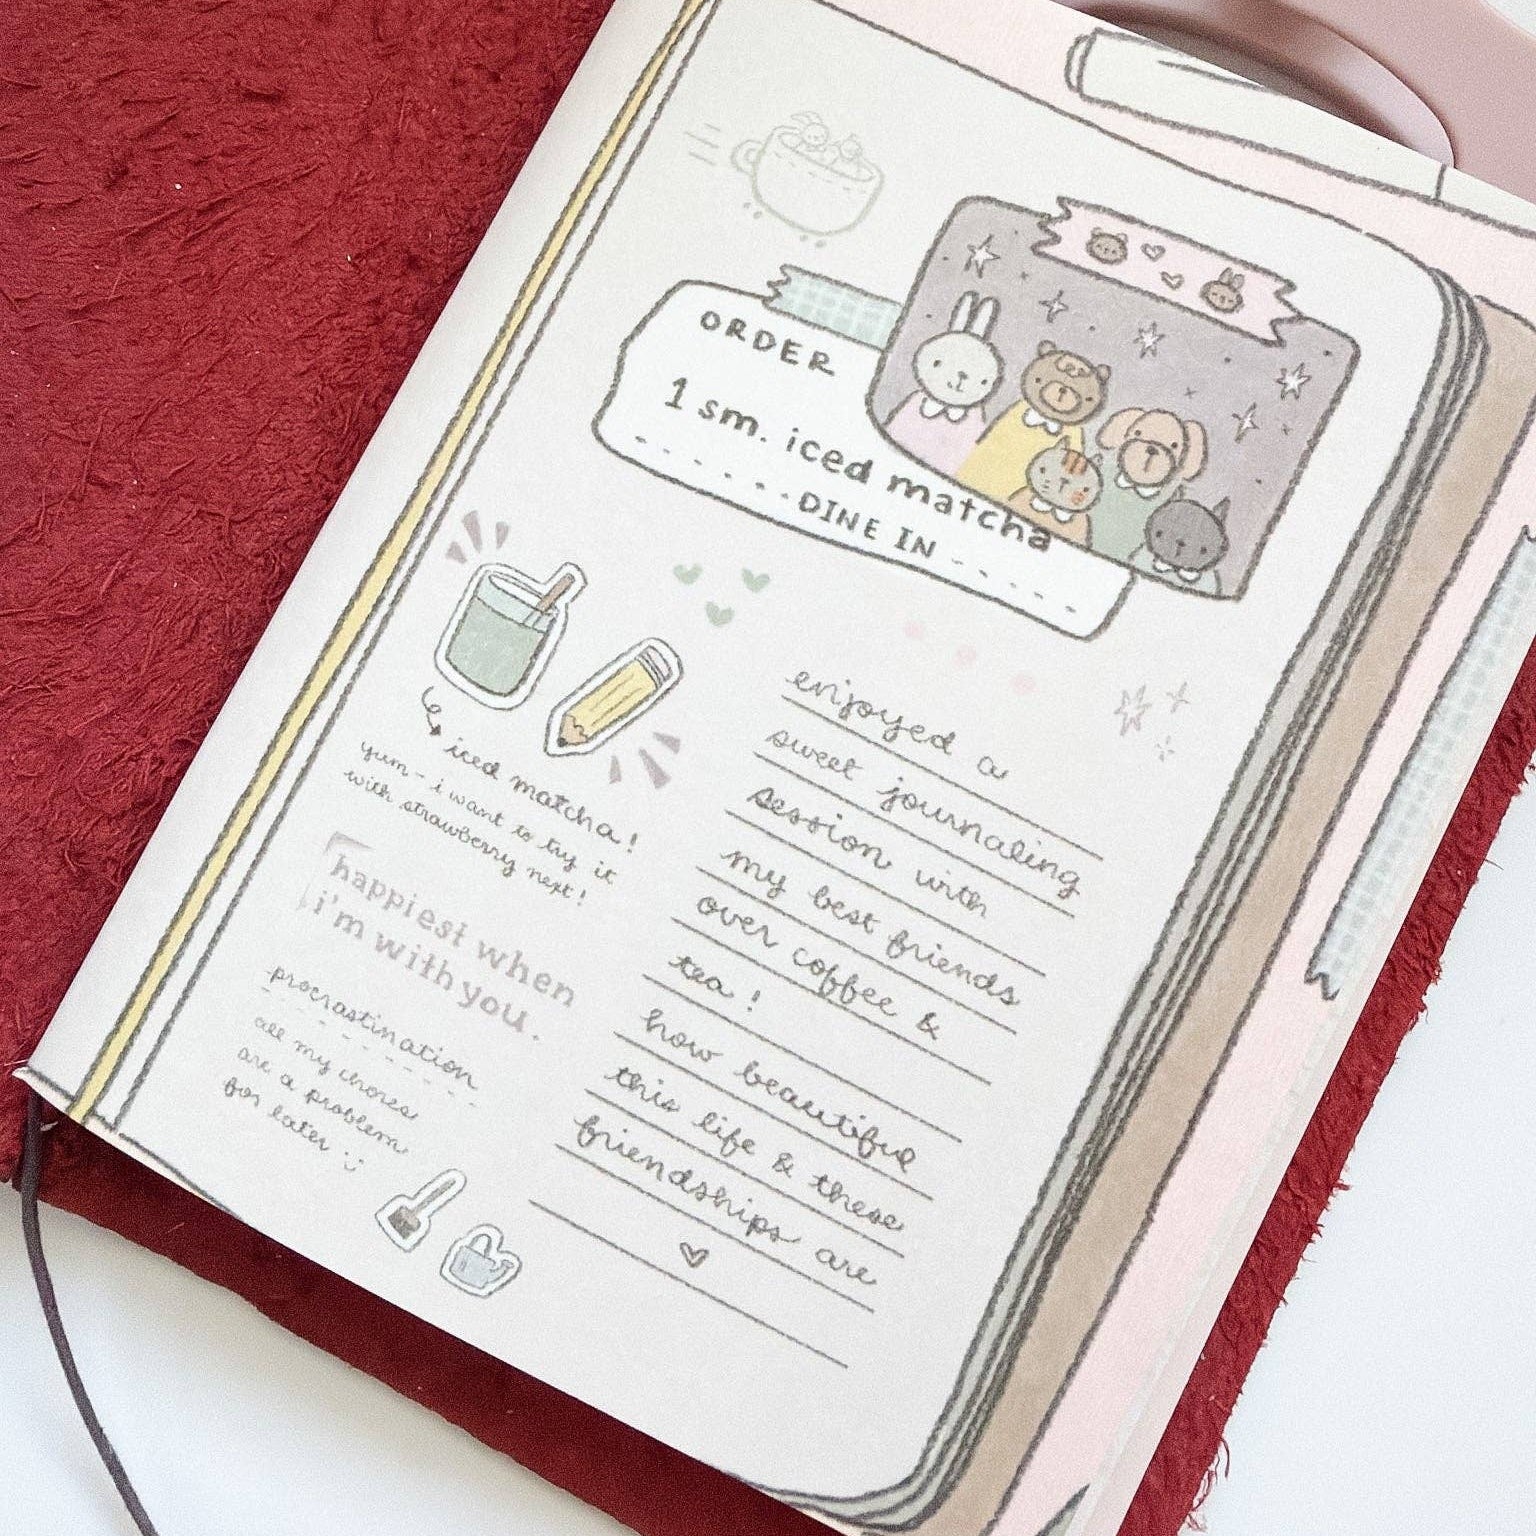 ORDER
1 sm. iced matcha
DINE IN
iced matcha!
yum - i want to try it
with strawberry next!
happiest when
i'm with you.
procrastination
all my chores
are a problem
for later :)
enjoyed a
sweet journaling
session with
my best friends
over coffee &
tea!
how beautiful
this life & these
friendships are